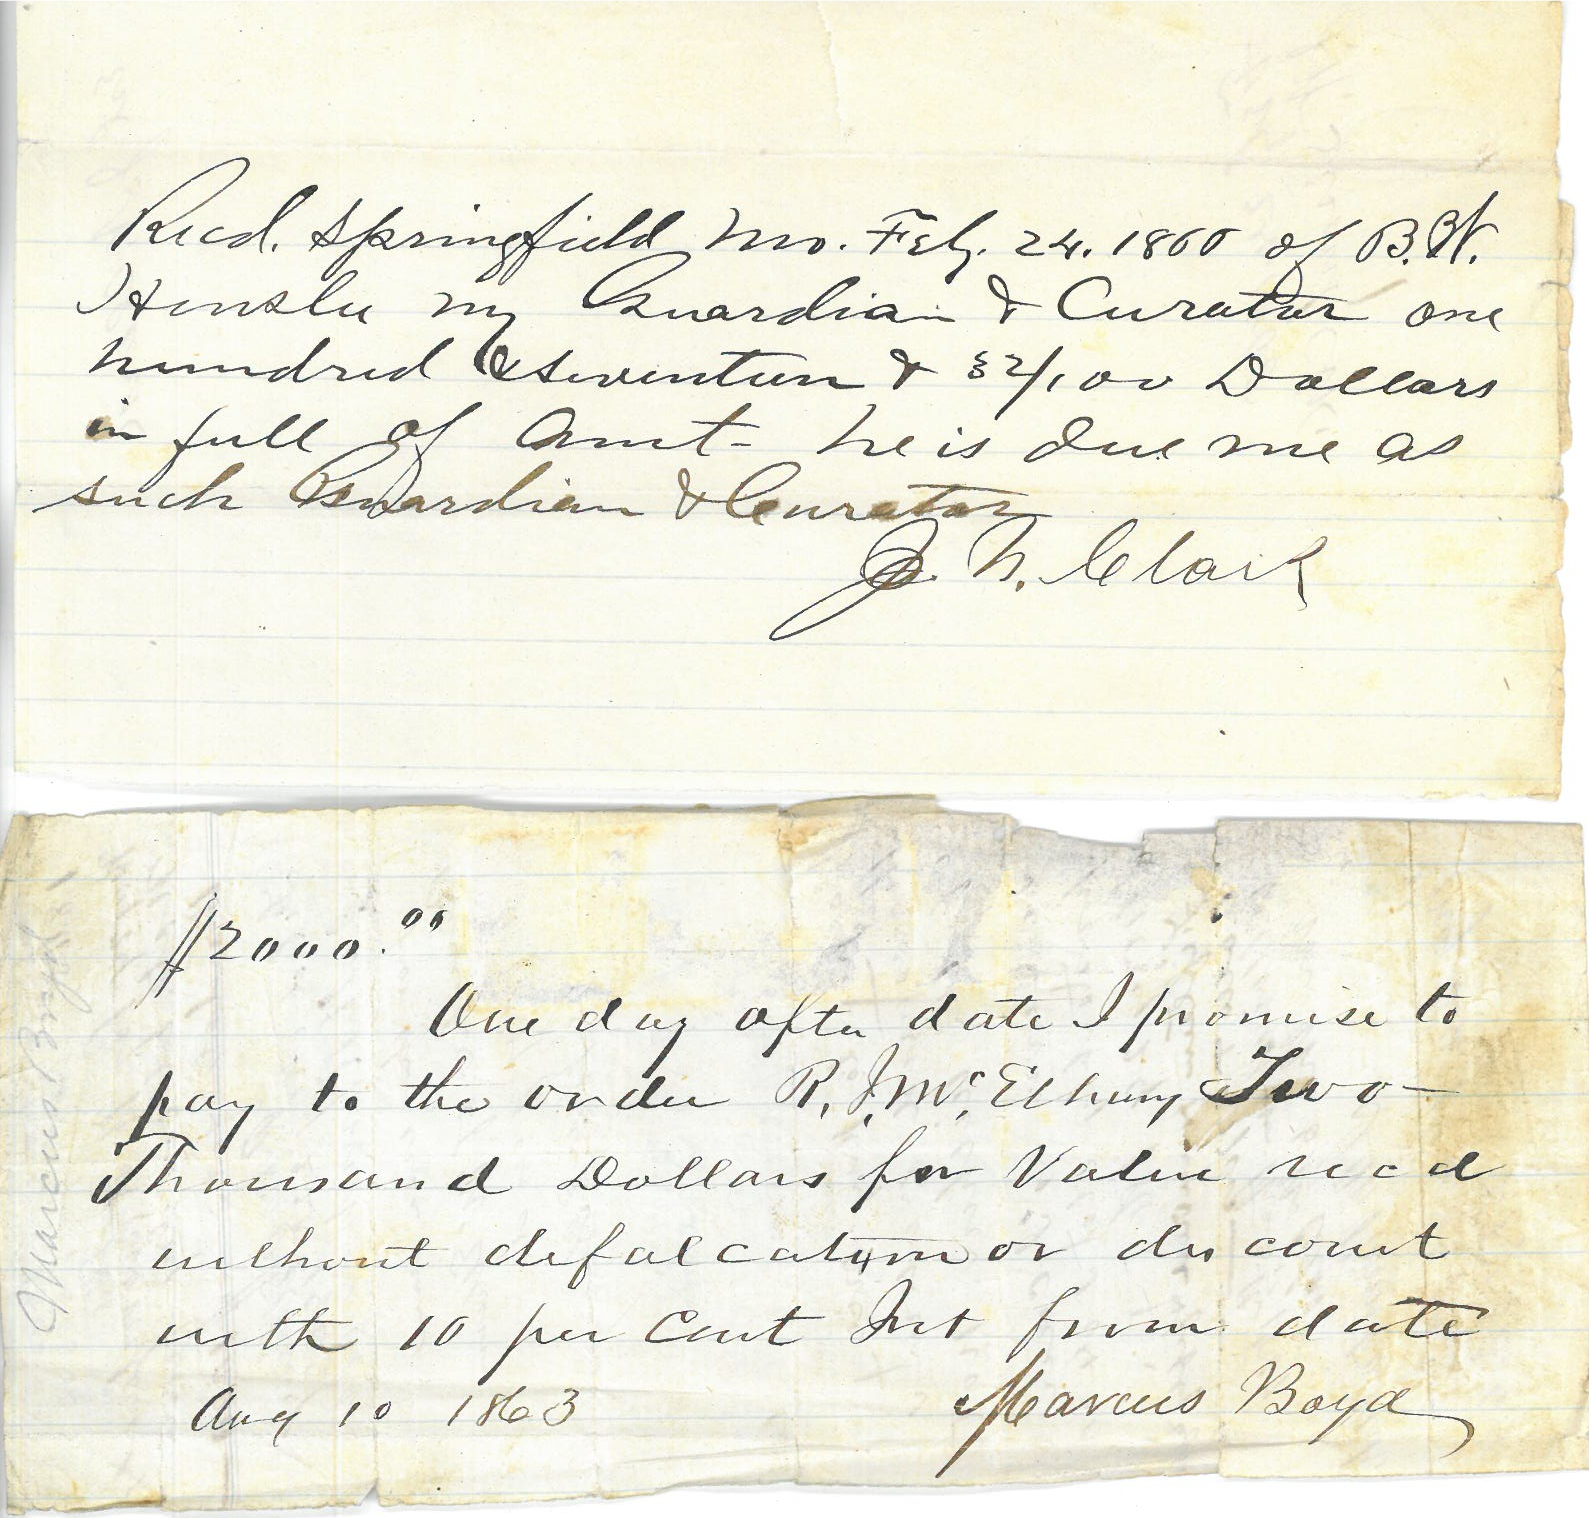 Recd. Springfield Mo. Feby. 24. 1860 of B.W.
Henslee my Guardian & Curator one
hundred & seventeen & 52/100 Dollars
in full of Amt- he is due me as
such Guardian & Curator
J. N. Clark
$2000.00
One day after date I promise to
pay to the order R. J. McElhany Two
Thousand Dollars for Value recd
without defalcation or discount
with 10 per Cent Int from date
Aug 10 1863
Marcus Boyd
Marcus Boyd